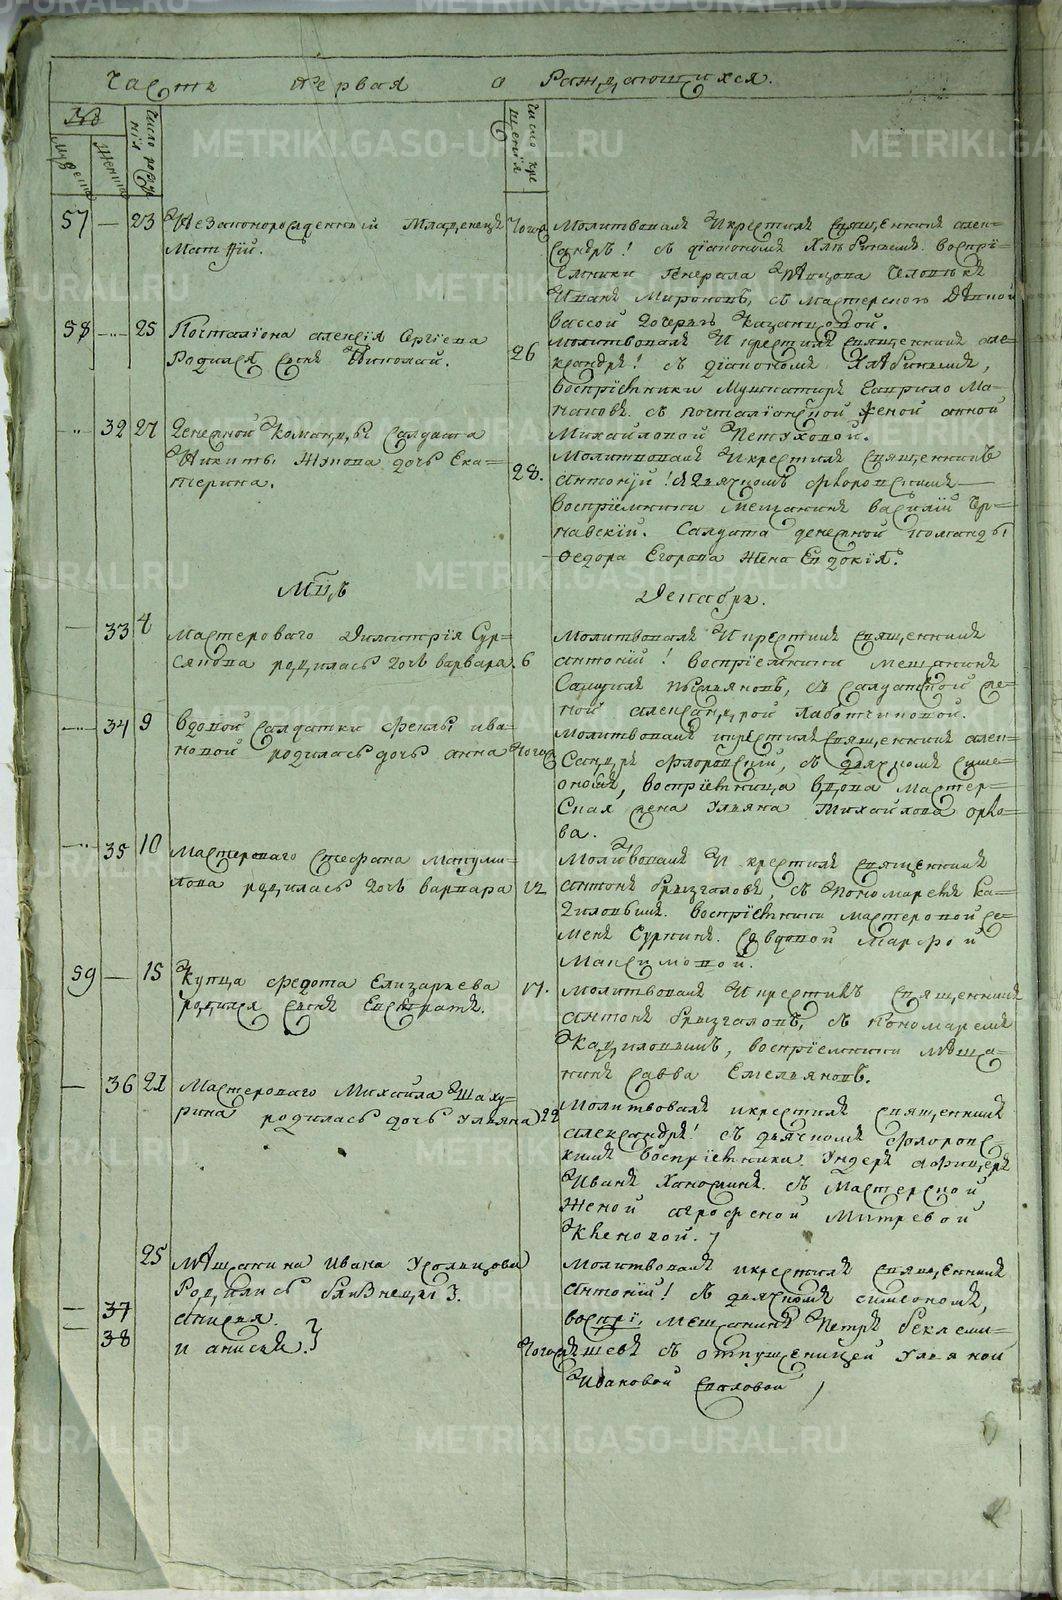 Часть первая о Раждающихся.
№
Мужеска
Женска
Число рожде
нія
Число кре
щенія
57 — 23 Незаконорожденный Младенецъ
Матѳій.
Тогож Молитвовалъ И крестилъ священникъ алек=
сандръ! съ діакономъ Хлѣбинымъ воспрі=
Емники Генерала человѣкъ
Иванъ Мироновъ, съ мастерскою дѣвкой
вассой дочерью Казанцовой.
58 — 25 Посталіона алексія Сергіева
Родился сынъ Николай.
26 Молитвовалъ И крестилъ священникъ але=
ксандръ! съ діакономъ Хлѣбинымъ,
воспріемники Мушкатиръ Гаврило Ма=
кановъ. съ посталіонской женой анной
Михайловой Петуховой.
— 32 27 Денежной Команды солдата
Никиты Жукова дочь Ека=
терина.
28. Молитвовалъ И крестилъ священникъ
антоній! съ дьячкомъ Флоровскимъ—
воспріемники мещанинъ василій Чер=
навскій. Салдата денежной команды
Ѳедора Егорова жена Евдокія.
Мцъ Декабрь.
— 33 4 Мастероваго Димитрія Сур=
сякова родилась дочь варвара. 6
Молитвовалъ И крестилъ священникъ
антоній! воспріемники мещанинъ
Самуилъ съ салдатской же=
ной александрой Лаботниковой.
— 34 9 вдовой салдатки Феклы ива=
новой родилась дочь анна Тогож
Молитвовалъ и крестилъ священникъ алек=
сандръ Флоровскій, съ дьячкомъ симе=
ономъ, воспріемница вдова мастер=
ская жена Ульяна Михайлова орло=
ва.
— 35 10 Мастероваго Стефана Макуши=
лова родилась дочь варвара 12
Молитвовалъ И крестилъ священникъ
антонъ Брызгаловъ, съ Пономаремъ Ка=
диловымъ. воспріемники мастеровой се=
менъ Суркинъ. съ вдовой Марфой
Максимовой.
59 — 15 Купца Федота Елизарьева
родился сынъ Евстратъ.
17. Молитвовалъ И крестилъ священникъ
антонъ Брызгаловъ, съ пономаремъ
Кадиловымъ, воспріемники мѣща=
нинъ савва Емельяновъ.
— 36 21 Мастероваго Михайла Шаху=
рина родилась дочь Ульяна) 22
Молитвовалъ и крестилъ священникъ
александръ! съ дьячкомъ Флоровс
кимъ воспріемники. Ундеръ афицеръ
Иванъ Ханскинъ. съ Мастерской
женой агрофеной Митревой
25 мѣщанина Ивана Усольцова
Родились близнецы 3.
— 37 анисья.
— 38 и анисья.}
Тогож
Молитвовалъ и крестилъ священникъ
антоній! съ дьячкомъ симеономъ,
воспрі. мещанинъ Петръ беклеми=
шевъ съ отпущеницей Ульяной
Ивановой